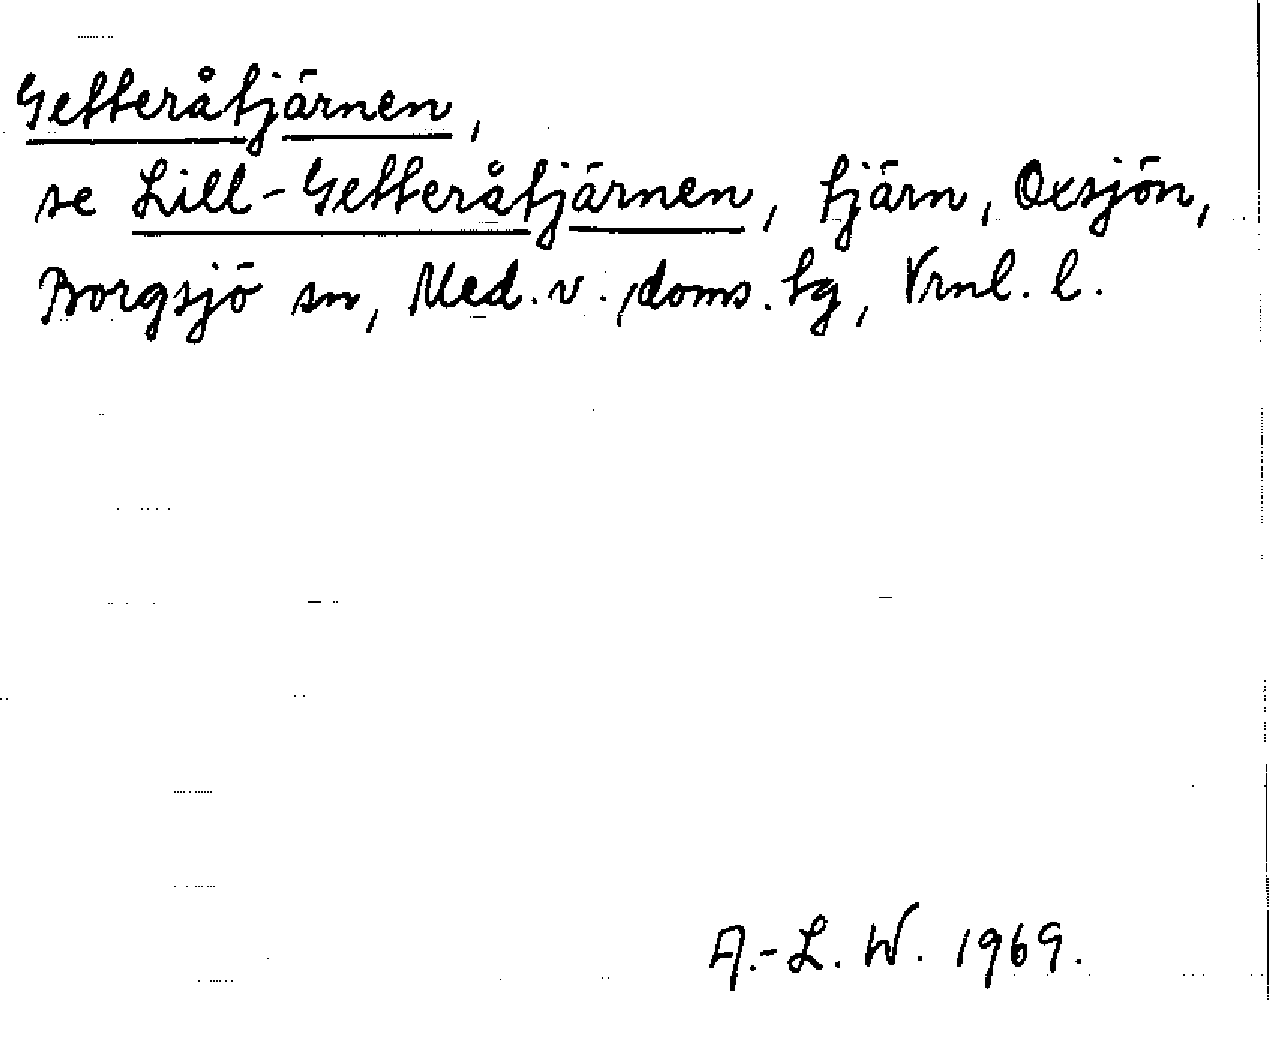 Getteråtjärnen,
se Lill-Getteråtjärnen, tjärn, Oxsjön,
Borgsjö sn, Med. v. doms. tg, Vrnl. l.
A.-L. W. 1969.